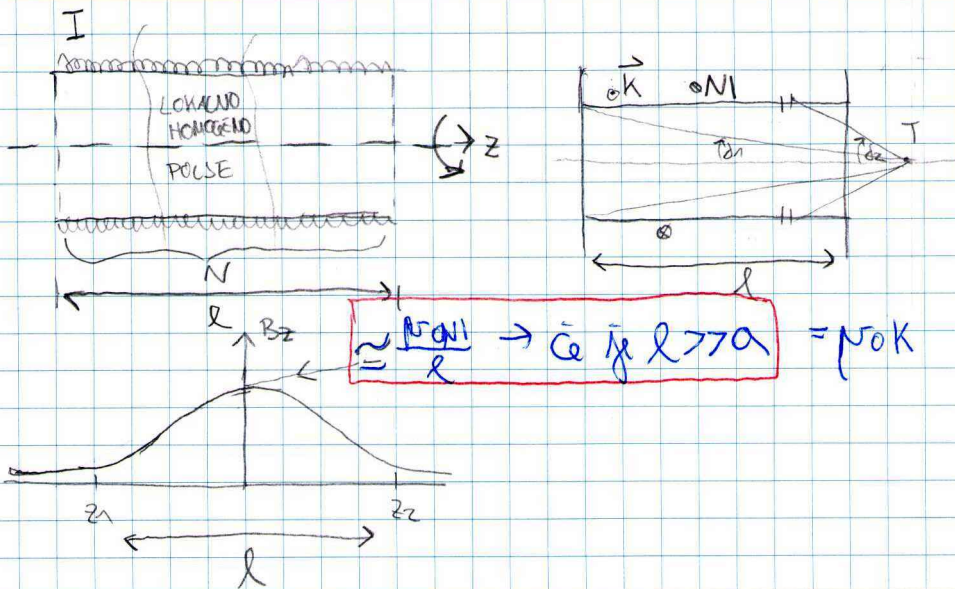 I
LOKALNO
HOMOGENO
POLJE
z
N
l
K⃗ NI
T
α1 α2
l
Bz
≅ μ0NI/l → če je l>>a = μ0K
z1 z2
l